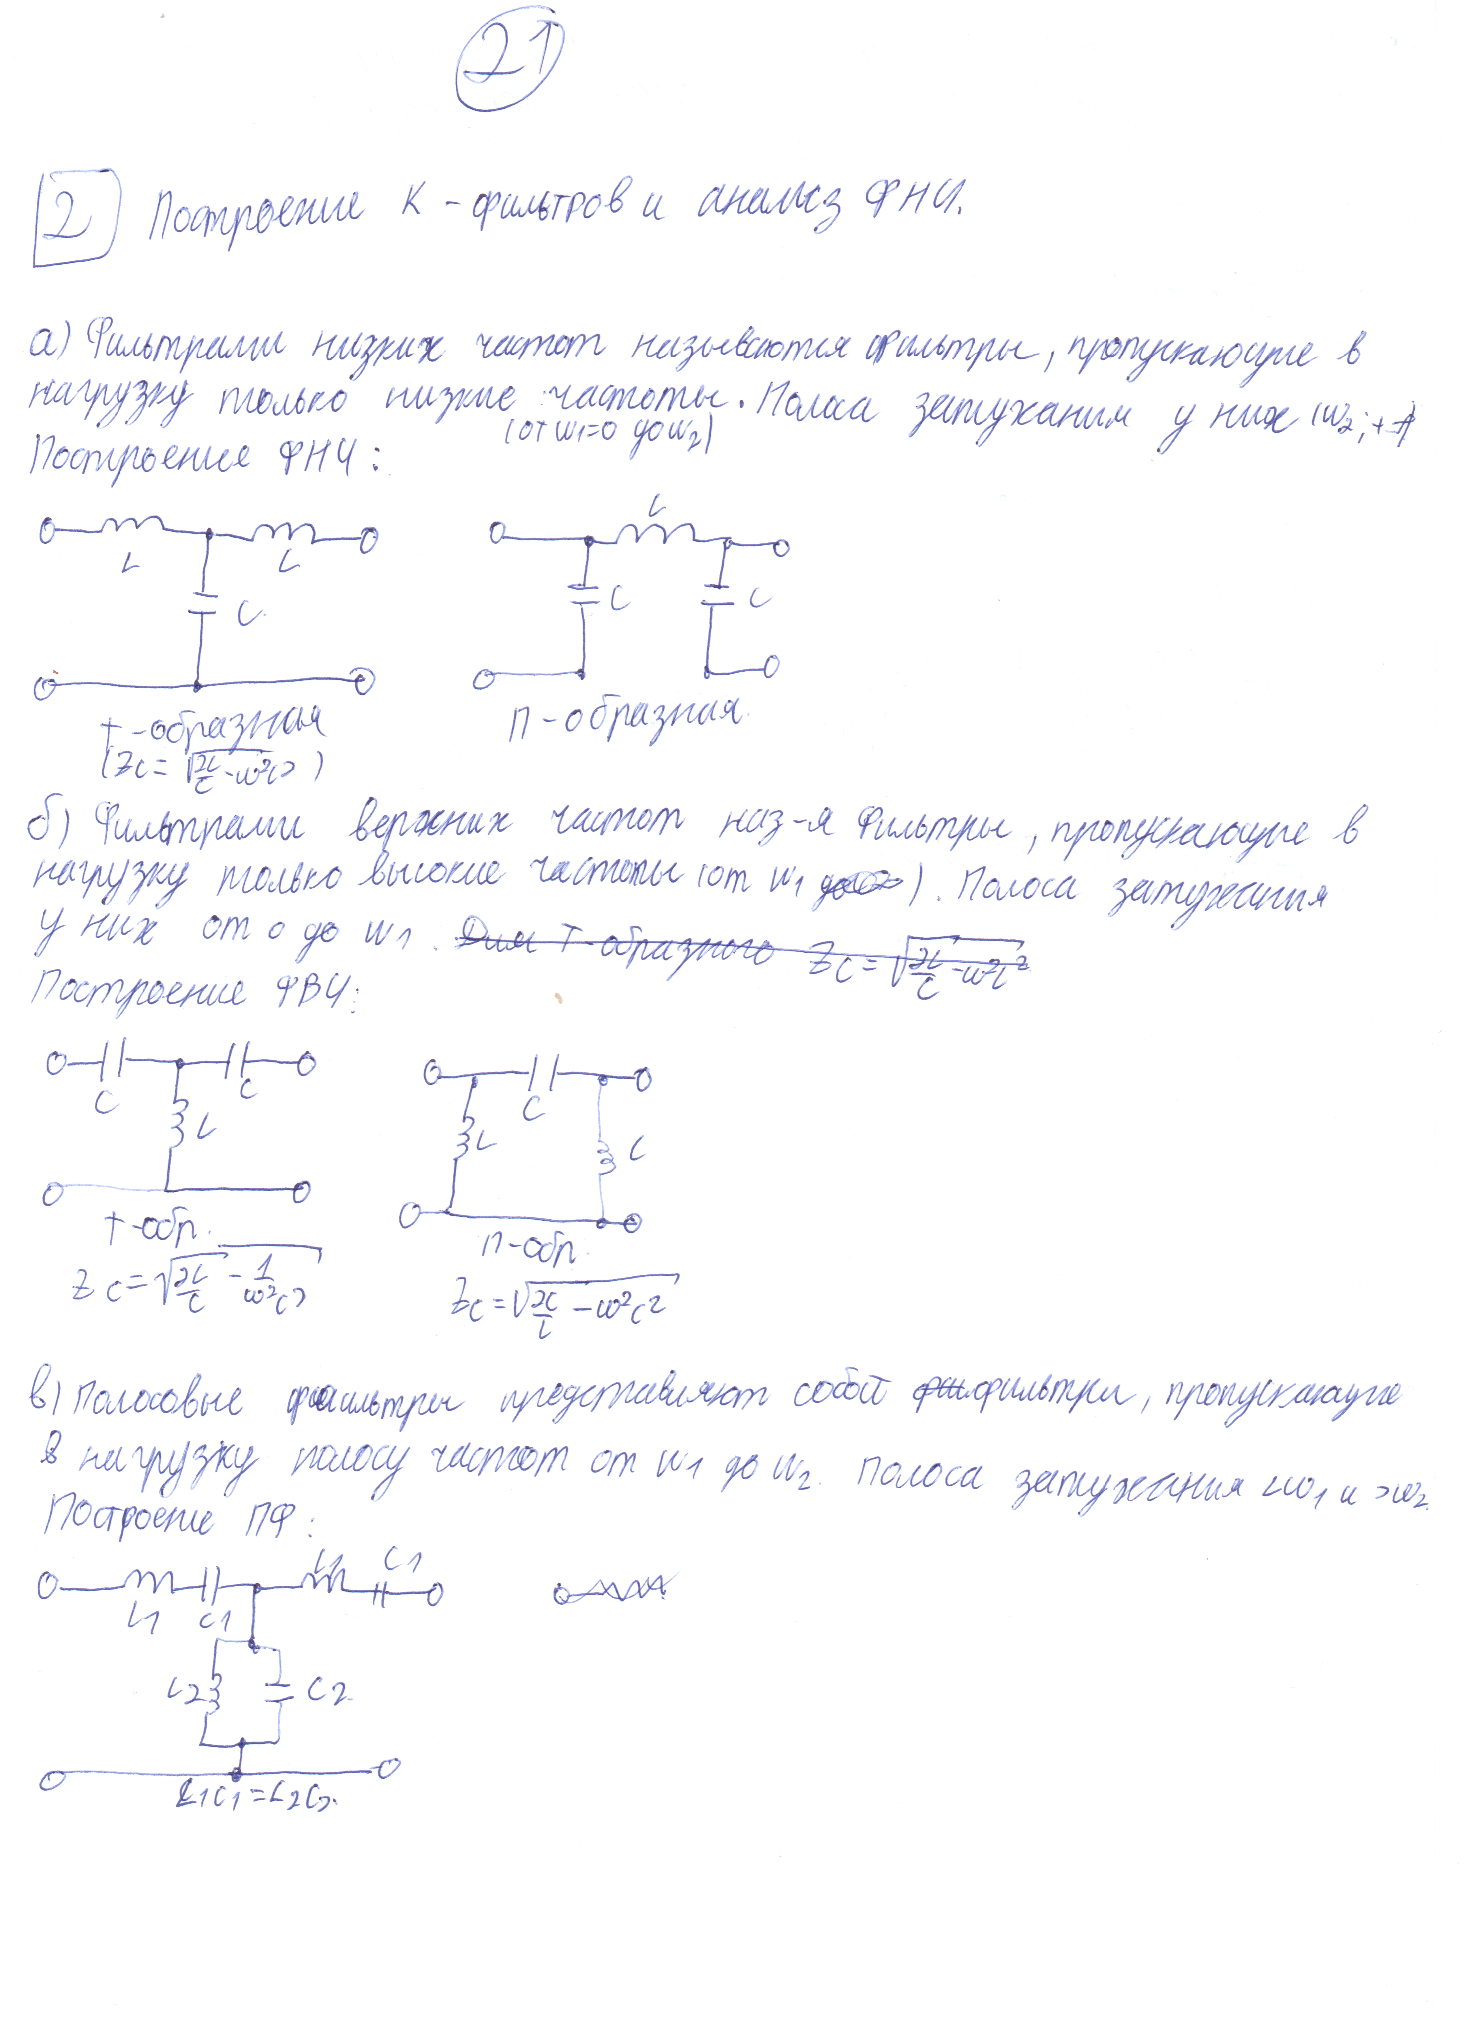 21
2 Построение К-фильтров и анализ ФНЧ.
а) Фильтрами низких частот называются фильтры, пропускающие в
нагрузку только низкие частоты. Полоса затухания у них (w2; +
(от w1=0 до w2)
Построение ФНЧ:
L L C
L C C
Т-образная
П-образная
(Zc = √(2L/C - w²L²))
б) Фильтрами верхних частот наз-я Фильтры, пропускающие в
нагрузку только высокие частоты (от w1 до ∞). Полоса затухания
у них от 0 до w1. Для Т-образного Zc = √(2L/C - w²L²)
Построение ФВЧ:
C C L
C L L
Т-обр.
П-обр.
Zc = √(2L/C - 1/w²C²)
Zc = √(2C/L - w²C²)
в) Полосовые фильтры представляют собой фильтры, пропускающие
в нагрузку полосу частот от w1 до w2. Полоса затухания <w1 и >w2
Построение ПФ:
L1 C1 L1 C1
L2 C2
L1C1=L2C2.